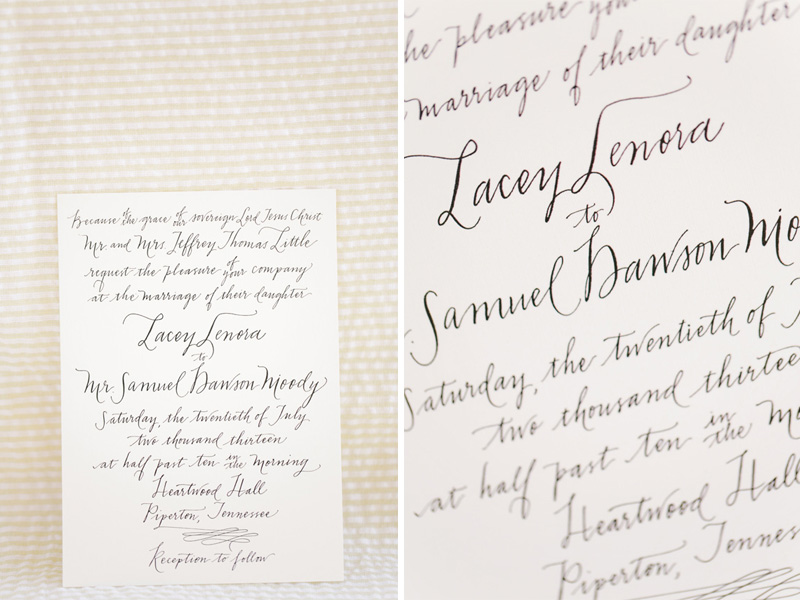 Because of the grace of our sovereign Lord Jesus Christ
Mr. and Mrs. Jeffrey Thomas Little
request the pleasure of your company
at the marriage of their daughter
Lacey Lenora
to
Mr. Samuel Dawson Moody
Saturday, the twentieth of July
two thousand thirteen
at half past ten in the Morning
Heartwood Hall
Piperton, Tennessee
Reception to follow
the pleasure your
marriage of their daughter
Lacey Lenora
to
Samuel Dawson Mo
Saturday, the twentieth of J
two thousand thirtee
at half past ten in the Mo
Heartwood Hall
Piperton, Tennes